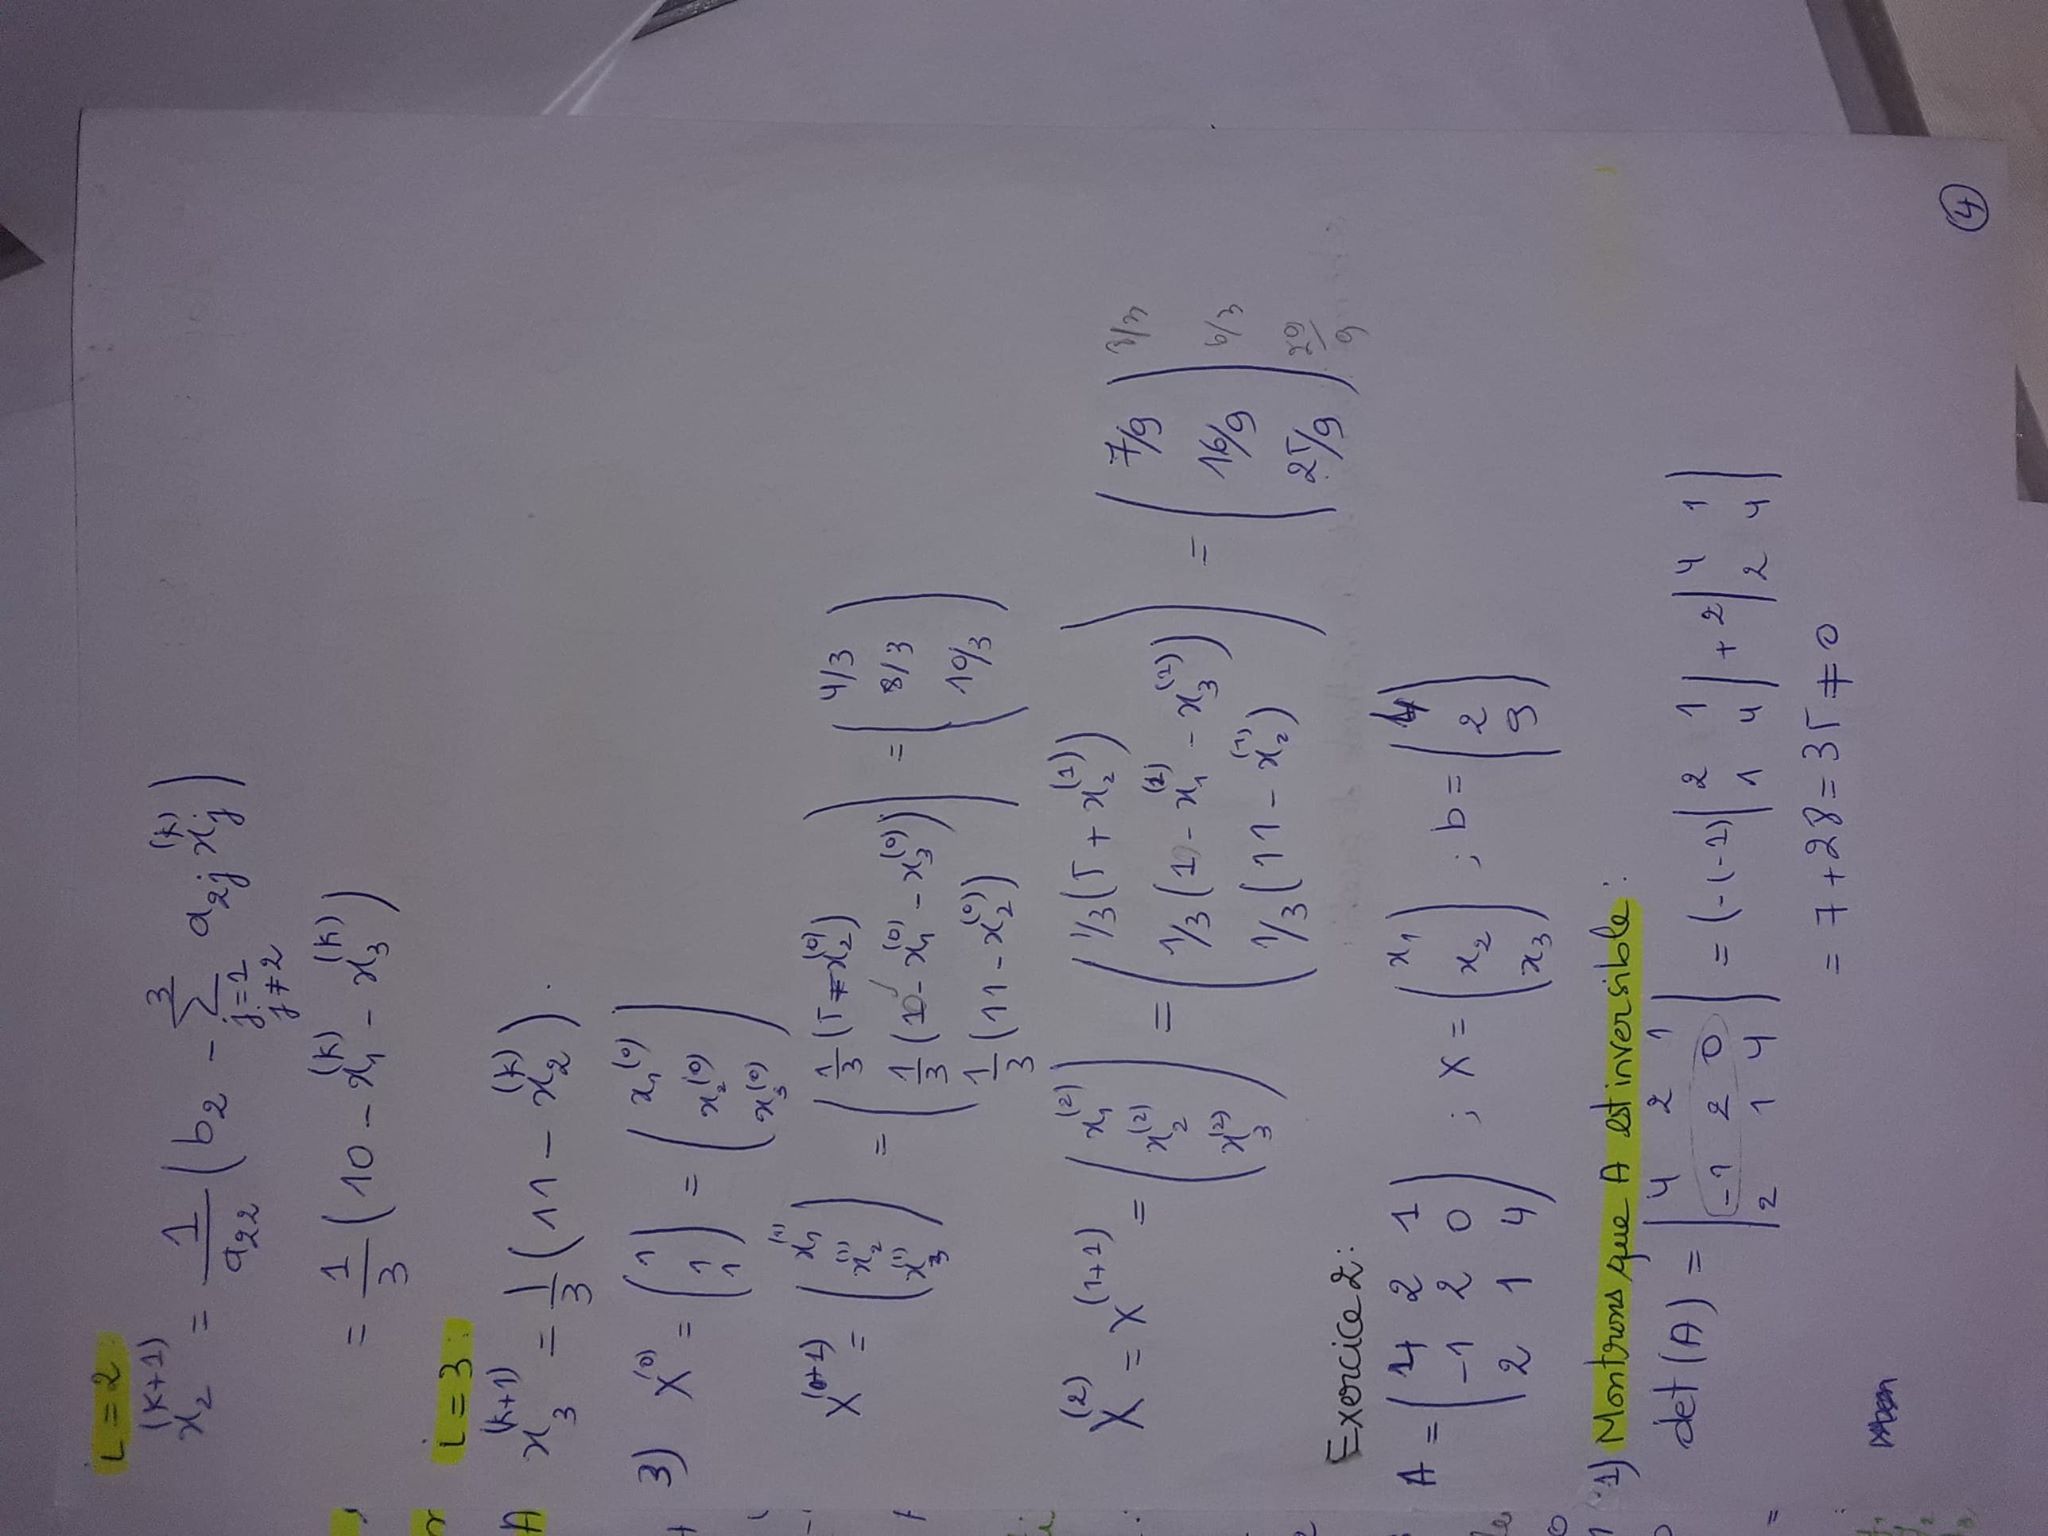 i = 2
x₂^(k+1) = 1/a₂₂ (b₂ - Σ_{j=1, j≠2}^{3} a₂ⱼ xⱼ^(k))
= 1/3 (10 - x₁^(k) - x₃^(k))
i = 3 :
x₃^(k+1) = 1/3 (11 - x₂^(k)).
3) X^(0) = (1 1 1) = (x₁^(0) x₂^(0) x₃^(0))
X^(0+1) = (x₁^(1) x₂^(1) x₃^(1)) = (1/3 (5 - x₂^(0)) 1/3 (10 - x₁^(0) - x₃^(0)) 1/3 (11 - x₂^(0))) = (4/3 8/3 10/3)
X^(2) = X^(1+1) = (x₁^(2) x₂^(2) x₃^(2)) = (1/3 (5 + x₂^(1)) 1/3 (10 - x₁^(1) - x₃^(1)) 1/3 (11 - x₂^(1))) = (7/9 16/9 25/9) 6/3 29/9
Exercice 2 :
A = (4 2 1 -1 2 0 2 1 4) ; X = (x₁ x₂ x₃) ; b = (4 2 9)
1) Montrons que A est inversible :
det (A) = |4 2 1 -1 2 0 2 1 4| = (-(-1) |2 1 1 4| + 2 |4 1 2 4|
= 7 + 28 = 35 ≠ 0
4